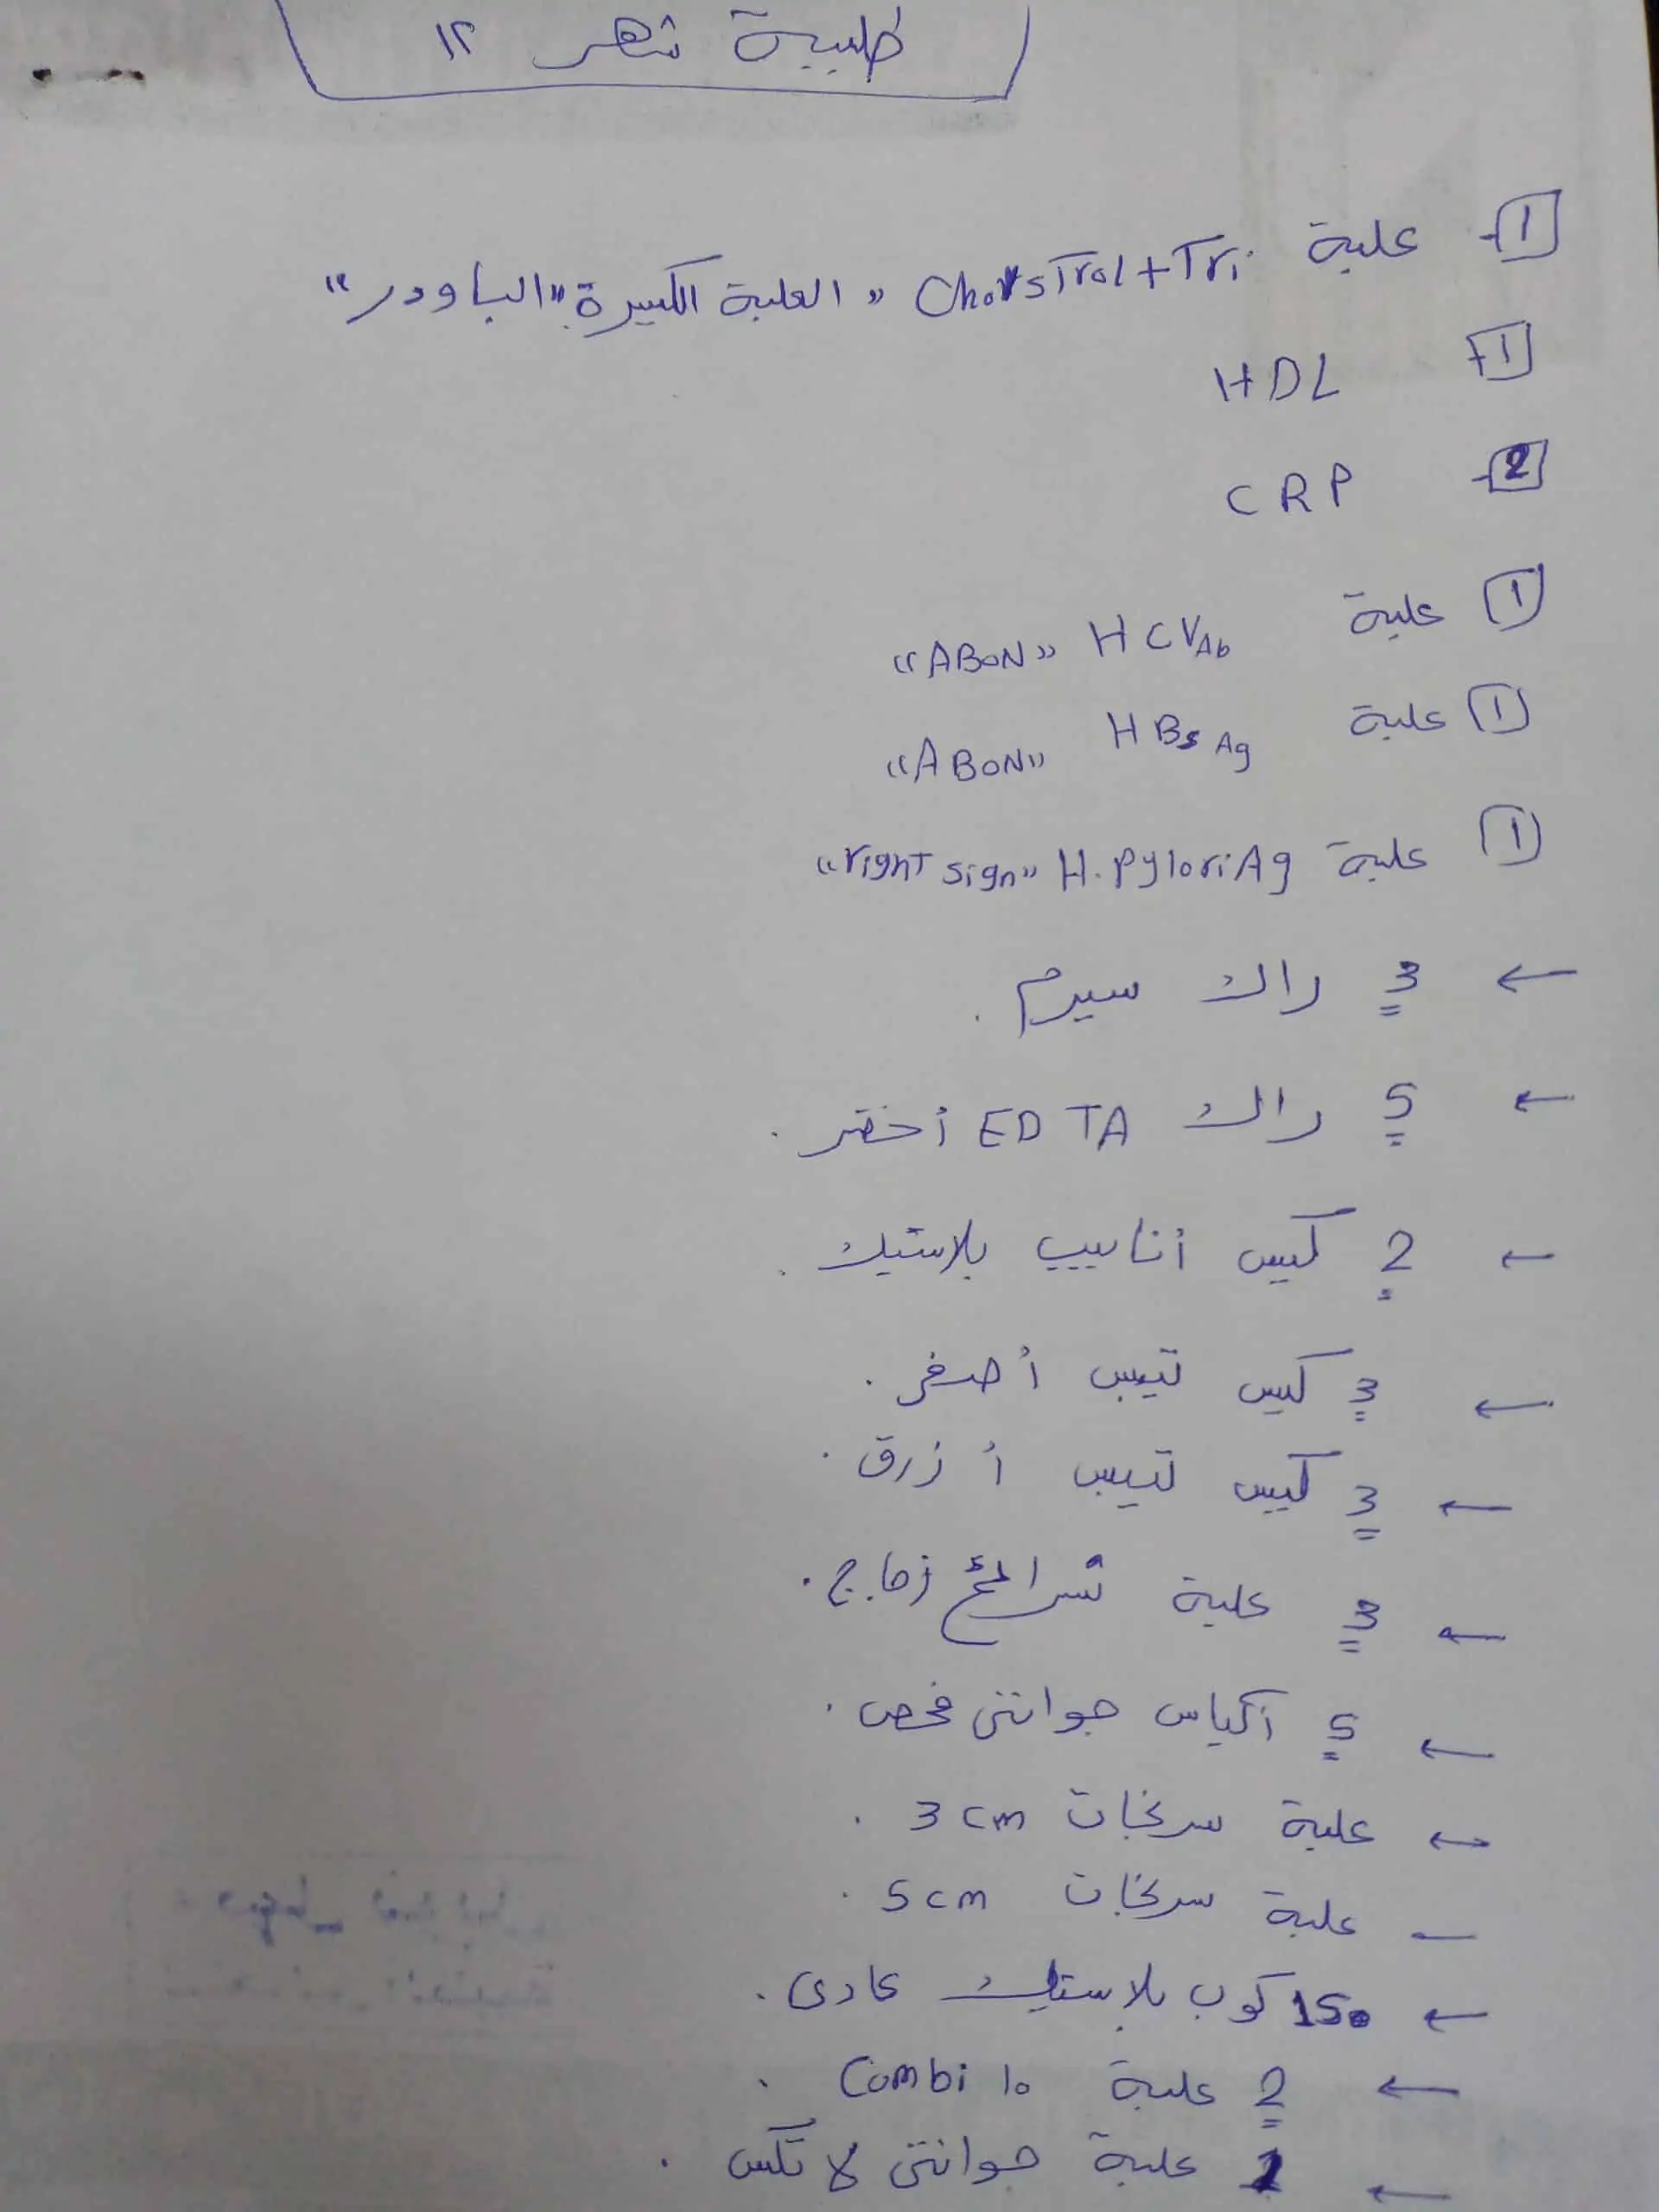 طلبية شهر ١٢
1- علبة CholesTrol + Tri "العلبة الكبيرة" "الباودر"
1- HDL
2- CRP
1 علبة HCV Ab "ABON"
1 علبة HBs Ag "ABON"
1 علبة H. Pylori Ag "right sign"
← 3 راك سيرم .
← 5 راك EDTA أخضر .
← 2 كيس أنابيب بلاستيك .
← 3 كيس تيبس أصفر .
← 3 كيس تيبس أزرق .
← 3 علبة شرائح زجاج .
← 5 أكياس جوانتى فحص .
← علبة سرنجات 3 cm .
– علبة سرنجات 5 cm .
← 150 كوب بلاستيك عادى .
← 2 علبة Combi 10 .
← 1 علبة جوانتى لاتكس .